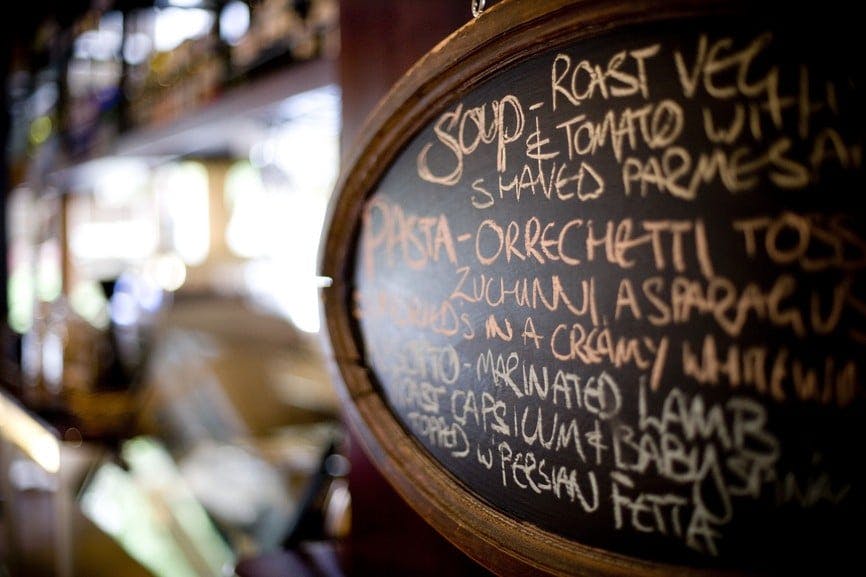 SOUP - ROAST VEG
& TOMATO WITH
SHAVED PARMESAN
PASTA - ORRECHETTI TOSS
ZUCHINNI, ASPARAGUS
IN A CREAMY WHITE WIN
- MARINATED LAMB
ROAST CAPSICUM & BABY SPIN
TOPPED W PERSIAN FETTA